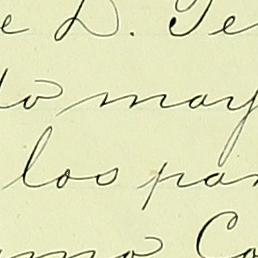 e D. Te
to may
los pa
mo Co